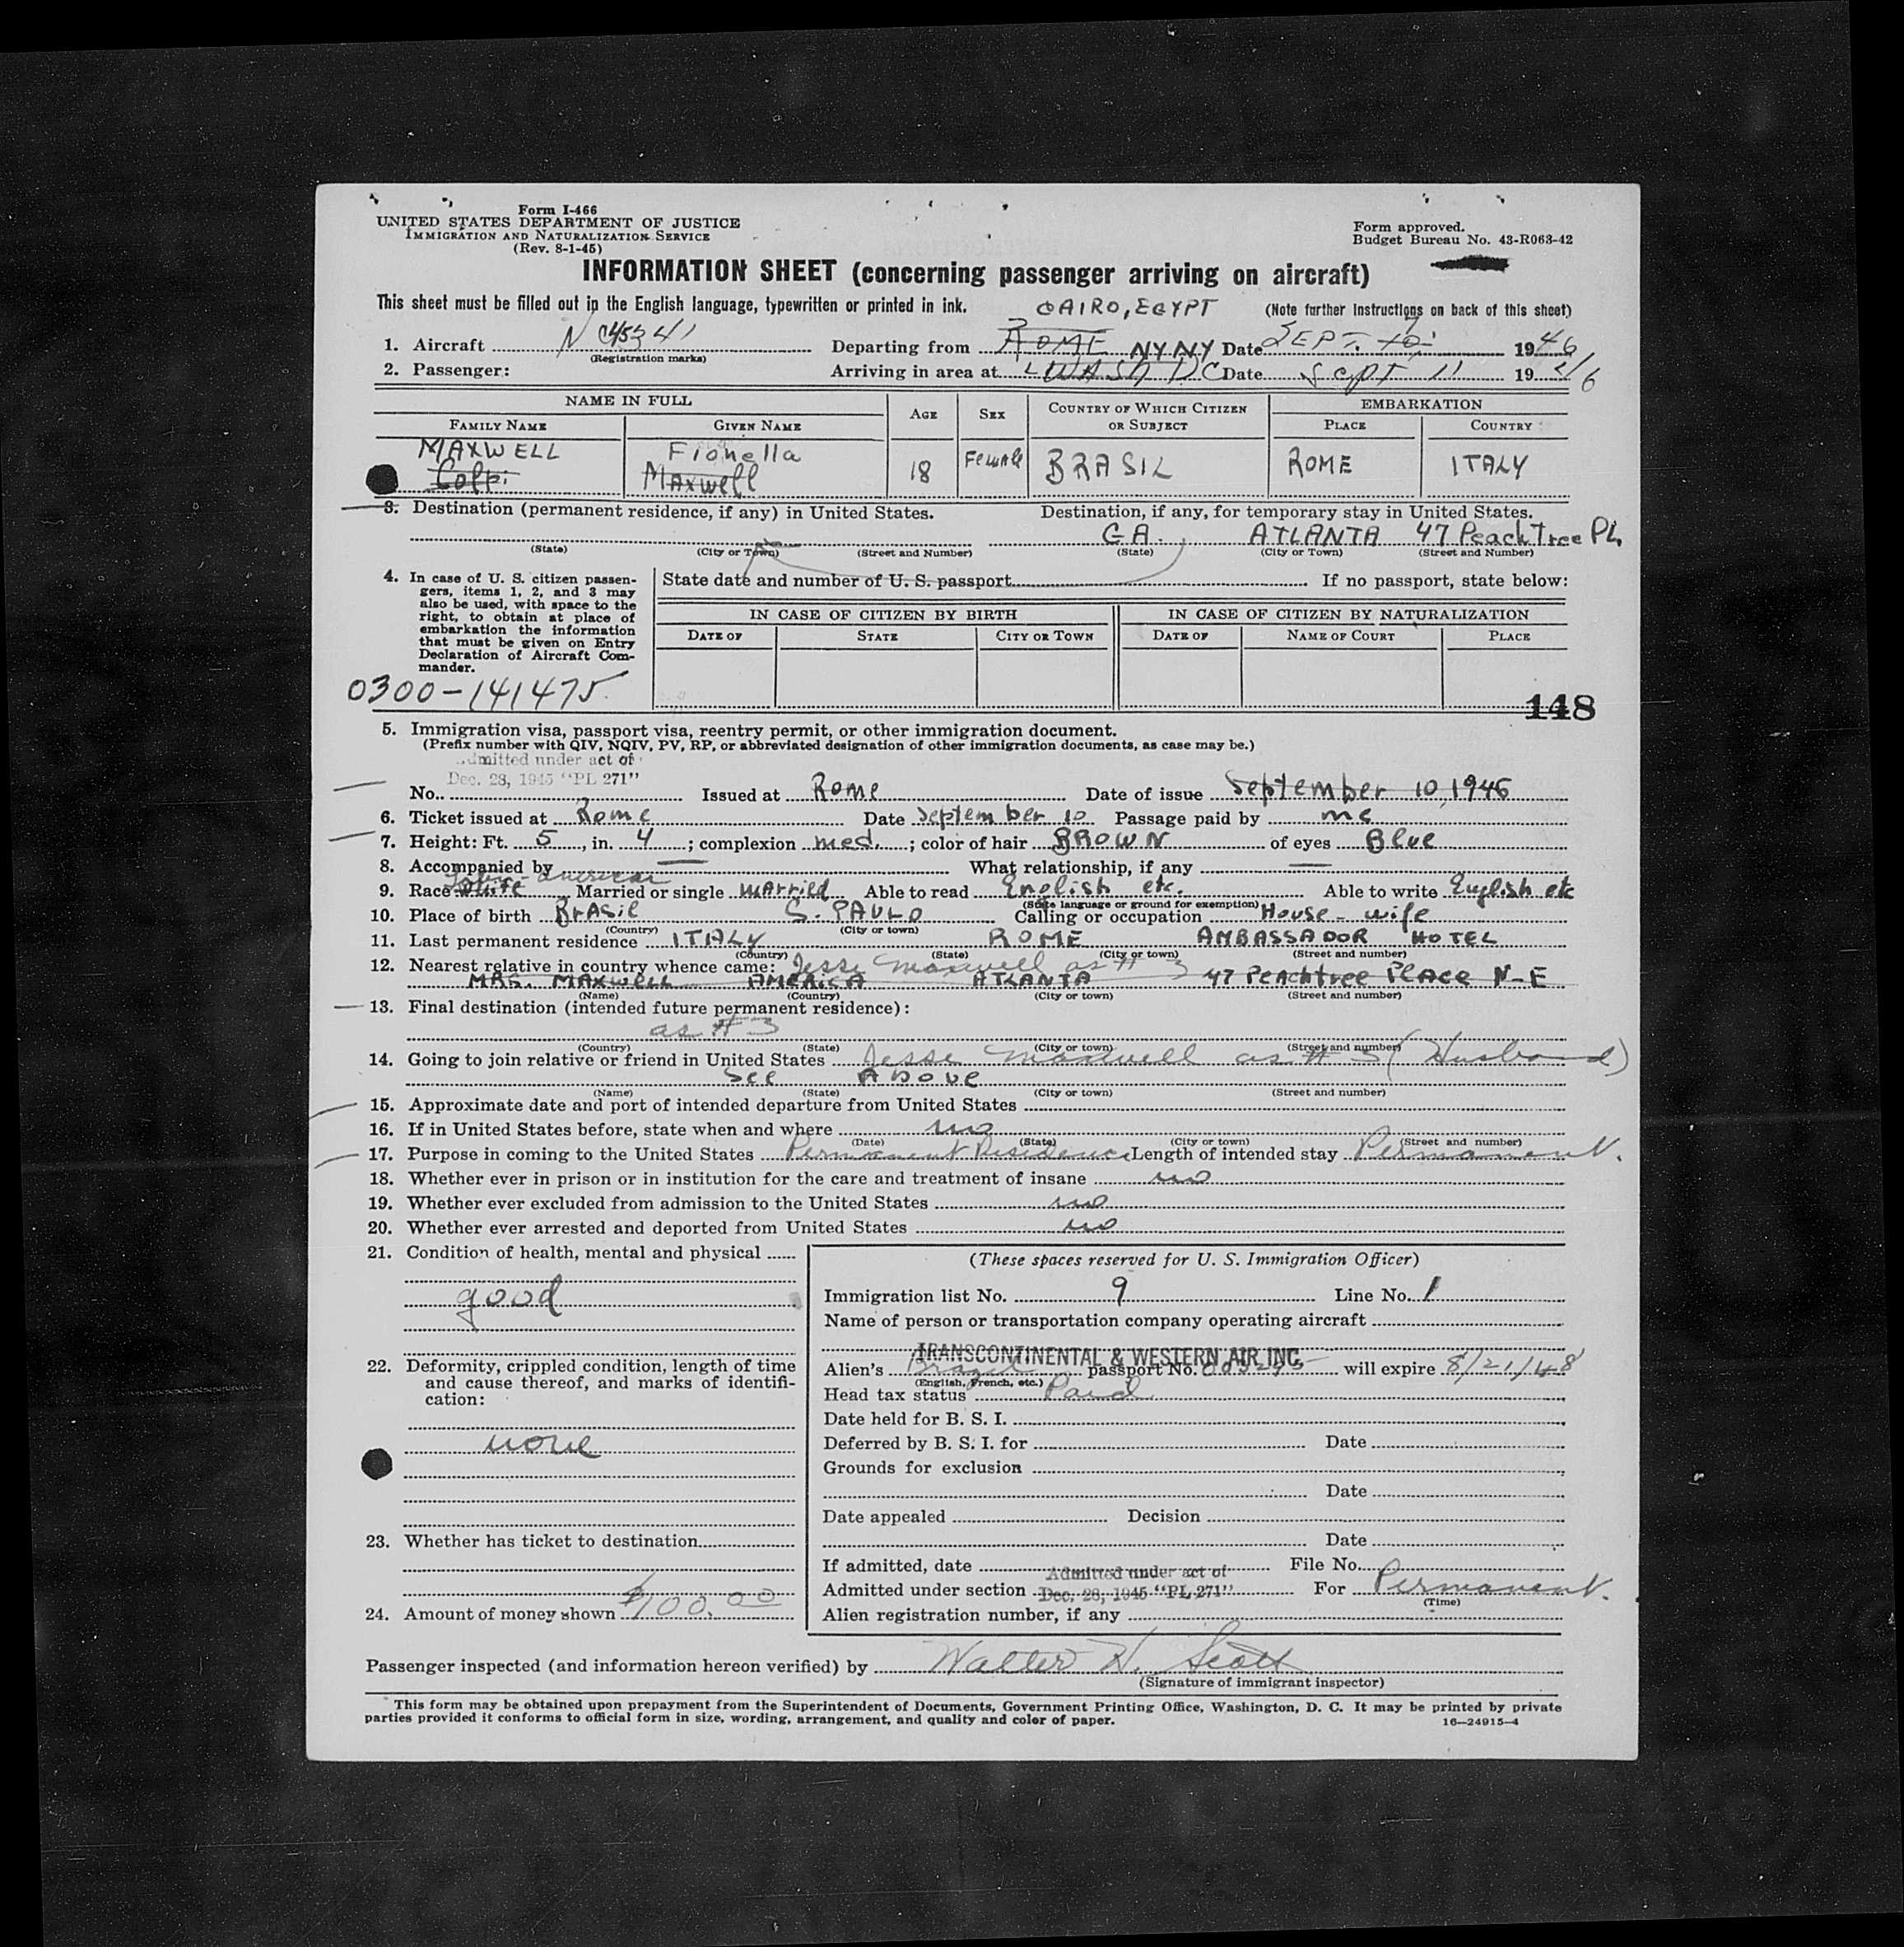 Form I-466
UNITED STATES DEPARTMENT OF JUSTICE
IMMIGRATION AND NATURALIZATION SERVICE
(Rev. 8-1-45)
Form approved.
Budget Bureau No. 43-R063-42
INFORMATION SHEET (concerning passenger arriving on aircraft)
This sheet must be filled out in the English language, typewritten or printed in ink. CAIRO, EGYPT (Note further instructions on back of this sheet)
1. Aircraft N C45341 Departing from ROME NYNY Date SEPT. 10 1946
(Registration marks)
2. Passenger: Arriving in area at WASH DC Date Sept 11 1946
NAME IN FULL AGE SEX COUNTRY OF WHICH CITIZEN OR SUBJECT EMBARKATION
FAMILY NAME GIVEN NAME PLACE COUNTRY
MAXWELL Fionella
Colpi Maxwell 18 Female BRASIL ROME ITALY
3. Destination (permanent residence, if any) in United States. Destination, if any, for temporary stay in United States.
GA. ATLANTA 47 PeachTree PL.
(State) (City or Town) (Street and Number) (State) (City or Town) (Street and Number)
4. In case of U. S. citizen passengers, items 1, 2, and 3 may also be used, with space to the right, to obtain at place of embarkation the information that must be given on Entry Declaration of Aircraft Commander.
State date and number of U. S. passport If no passport, state below:
IN CASE OF CITIZEN BY BIRTH IN CASE OF CITIZEN BY NATURALIZATION
DATE OF STATE CITY OR TOWN DATE OF NAME OF COURT PLACE
0300-141475
148
5. Immigration visa, passport visa, reentry permit, or other immigration document.
(Prefix number with QIV, NQIV, PV, RP, or abbreviated designation of other immigration documents, as case may be.)
Admitted under act of
Dec. 28, 1945 "PL 271"
No. Issued at Rome Date of issue September 10, 1946
6. Ticket issued at Rome Date September 10 Passage paid by me
7. Height: Ft. 5, in. 4; complexion med.; color of hair BROWN of eyes Blue
8. Accompanied by — What relationship, if any —
9. Race White Latin-American Married or single married Able to read English etc. Able to write English etc
(State language or ground for exemption)
10. Place of birth BrAsil S. PAULO Calling or occupation House-wife
(Country) (City or town)
11. Last permanent residence ITALY ROME AMBASSADOR HOTEL
(Country) (State) (City or town) (Street and number)
12. Nearest relative in country whence came: Jesse Maxwell as # 3
MRS. MAXWELL AMERICA ATLANTA 47 Peachtree Place N-E
(Name) (Country) (City or town) (Street and number)
13. Final destination (intended future permanent residence):
as # 3
(Country) (State) (City or town) (Street and number)
14. Going to join relative or friend in United States Jesse Maxwell as # 3 (Husband)
See Above
(Name) (State) (City or town) (Street and number)
15. Approximate date and port of intended departure from United States
16. If in United States before, state when and where no
(Date) (State) (City or town) (Street and number)
17. Purpose in coming to the United States Permanent Residence Length of intended stay Permanent.
18. Whether ever in prison or in institution for the care and treatment of insane no
19. Whether ever excluded from admission to the United States no
20. Whether ever arrested and deported from United States no
21. Condition of health, mental and physical
good
22. Deformity, crippled condition, length of time and cause thereof, and marks of identification:
none
23. Whether has ticket to destination
24. Amount of money shown $100.00
(These spaces reserved for U. S. Immigration Officer)
Immigration list No. 9 Line No. 1
Name of person or transportation company operating aircraft
TRANSCONTINENTAL & WESTERN AIR INC.
Alien's Brazil passport No. will expire 8/21/48
(English, French, etc.)
Head tax status Paid
Date held for B. S. I.
Deferred by B. S. I. for Date
Grounds for exclusion
Date
Date appealed Decision
Date
If admitted, date File No.
Admitted under act of
Admitted under section Dec. 28, 1945 "PL 271" For Permanent.
(Time)
Alien registration number, if any
Passenger inspected (and information hereon verified) by Walter H. Scott
(Signature of immigrant inspector)
This form may be obtained upon prepayment from the Superintendent of Documents, Government Printing Office, Washington, D. C. It may be printed by private
parties provided it conforms to official form in size, wording, arrangement, and quality and color of paper.
16—24915-4